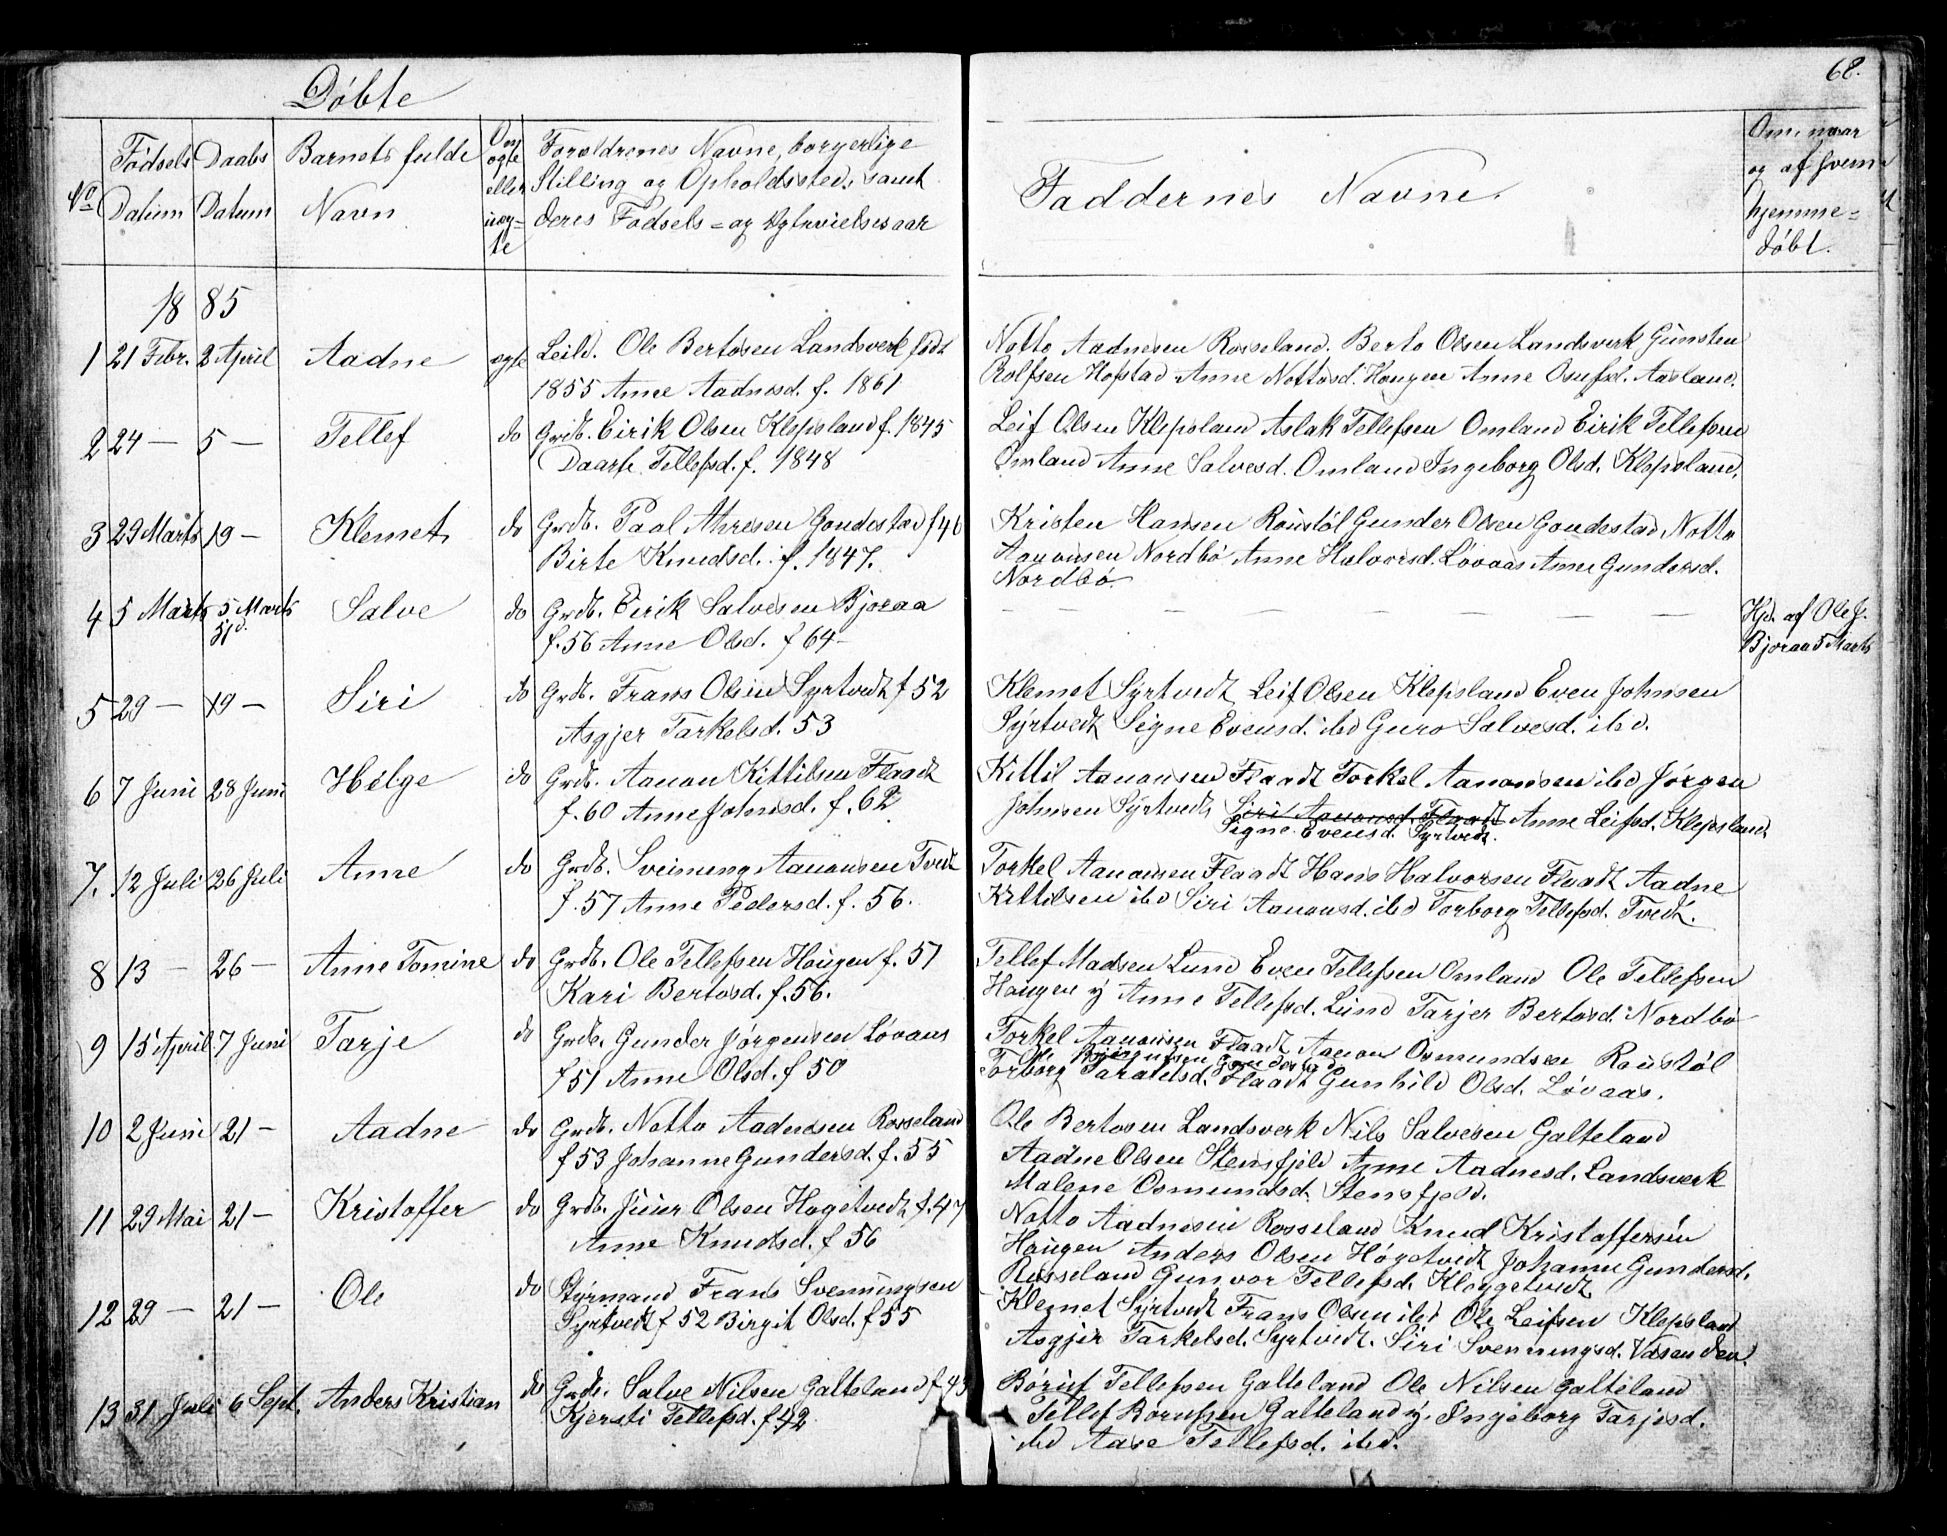 68.
Døbte
No
Fødsels Datum
Daabs Datum
Barnets fulde Navn
Om ægte eller uæg=te
Forældrenes Navne, borgerlige
Stilling og Opholdssted, samt
deres Fødsels- og Ægtevielsesaar
Faddernes Navne.
Om, naar
og af hvem
hjemme=
døbt.
1885
1 21 Febr. 2 April Aadne ægte Leild. Ole Bertosen Landsverk født
1855 Anne Aadnesd. f. 1861
Notto Aadnesen Rosseland. Berto Olsen Landsverk Gunsten
Rolfsen Hofstad Anne Nottosd. Hougen Anne Osufsd. Aasland.
2 24 — 5 — Tellef do Grdb. Eirik Olsen Klepsland f. 1845
Daarte Tellefsd. f. 1848
Leif Olsen Klepsland Aslak Tellefsen Omland Eirik Tellefsen
Omland Anne Salvesd. Omland Ingeborg Olsd. Klepsland.
3 29 Marts 19 — Klemet do Grdb. Paal Ahresen Goudestad f 46
Birte Knudsd. f. 1847.
Kristen Hansen Roustøl Gunder Olsen Goudestad Notto
Aanonsen Nordbø Anne Halvorsd. Løvaas Anne Gundersd.
Nordbø
4 5 Marts 5 Marts Salve do Grdb. Eirik Salvesen Bjoraa
f. 56 Anne Olsd. f 64
— — — — — — —
Hjd. af Ole J.
Bjoraa 5 Marts
5 29 — 19 — Siri do Grdb. Frans Olsen Syrtvedt f 52
Asgjer Tarkelsd. 53
Klemet Syrtvedt Leif Olsen Klepsland Even Johnsen
Syrtvedt Signe Evensd. ibd Guro Salvesd. ibd.
6 7 Juni 28 Juni Helge do Grdb. Aanon Kittilsen Flaadt
f. 60 Anne Johnsd. f. 62
Kittil Aanonsen Flaadt Torkel Aanonsen ibd Jørgen
Johnsen Syrtvedt Siri Aanonsd. Flaadt Anne Leifsd. Klepsland
Signe Evensd. Syrtvedt.
7. 12 Juli 26 Juli Anne do Grdb. Sveinung Aanonsen Tvedt
f. 57 Anne Pedersd. f. 56.
Torkel Aanonsen Flaadt Hans Halvorsen Flaadt Aadne
Kittilsen ibd Siri Aanonsd. ibd Torborg Tellefsd. Tvedt.
8 13 — 26 — Anne Tomine do Grdb. Ole Tellefsen Hougen f. 57
Kari Bertosd. f. 56.
Tellef Madsen Lund Even Tellefsen Omland Ole Tellefsen
Hougen y Anne Tellefsd. Lund Tarjer Bertosd. Nordbø
9 15 April 7 Juni Tarje do Grdb. Gunder Jørgensen Løvaas
f 51 Anne Olsd. f 50
Torkel Aanonsen Flaadt Aanon Osmundsen Roustøl
Torborg Taraldsd. Flaadt Gunhild Olsd. Løvaas.
10 2 Juni 21 — Aadne do Grdb. Notto Aadnesen Rosseland
f 53 Johanne Gundersd. f. 55
Ole Bertosen Landsverk Nils Salvesen Galteland
Aadne Olsen Stensfjeld Anne Aadnesd. Landsverk
Malene Osmundsd. Stensfjeld.
11 29 Mai 21 — Kristoffer do Grdb. Juur Olsen Høgetvedt f. 47
Anne Knudsd. f 56
Notto Aadnesen Rosseland Knud Kristoffersen
Hougen Anders Olsen Høgetvedt Johanne Gundersd.
Rosseland Gunvor Tellefsd. Kloggetvedt
12 29 — 21 — Ole do Styrmand Frans Svenningsen
Syrtvedt f 52 Birgit Olsd. f 55
Klemet Syrtvedt Frans Olsen ibd Ole Leifsen Klepsland
Asgjer Tarkelsd. Syrtvedt. Siri Svenningsd. Vasenden.
13 31 Juli 6 Sept. Anders Kristian do Grdb. Salve Nilsen Galteland f 45
Kjersti Tellefsd. f 42.
Børuf Tellefsen Galteland Ole Nilsen Galteland
Tellef Børufsen Galteland y. Ingeborg Tarjesd.
ibd Aase Tellefsd. ibd.